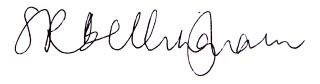 SR Bellingham